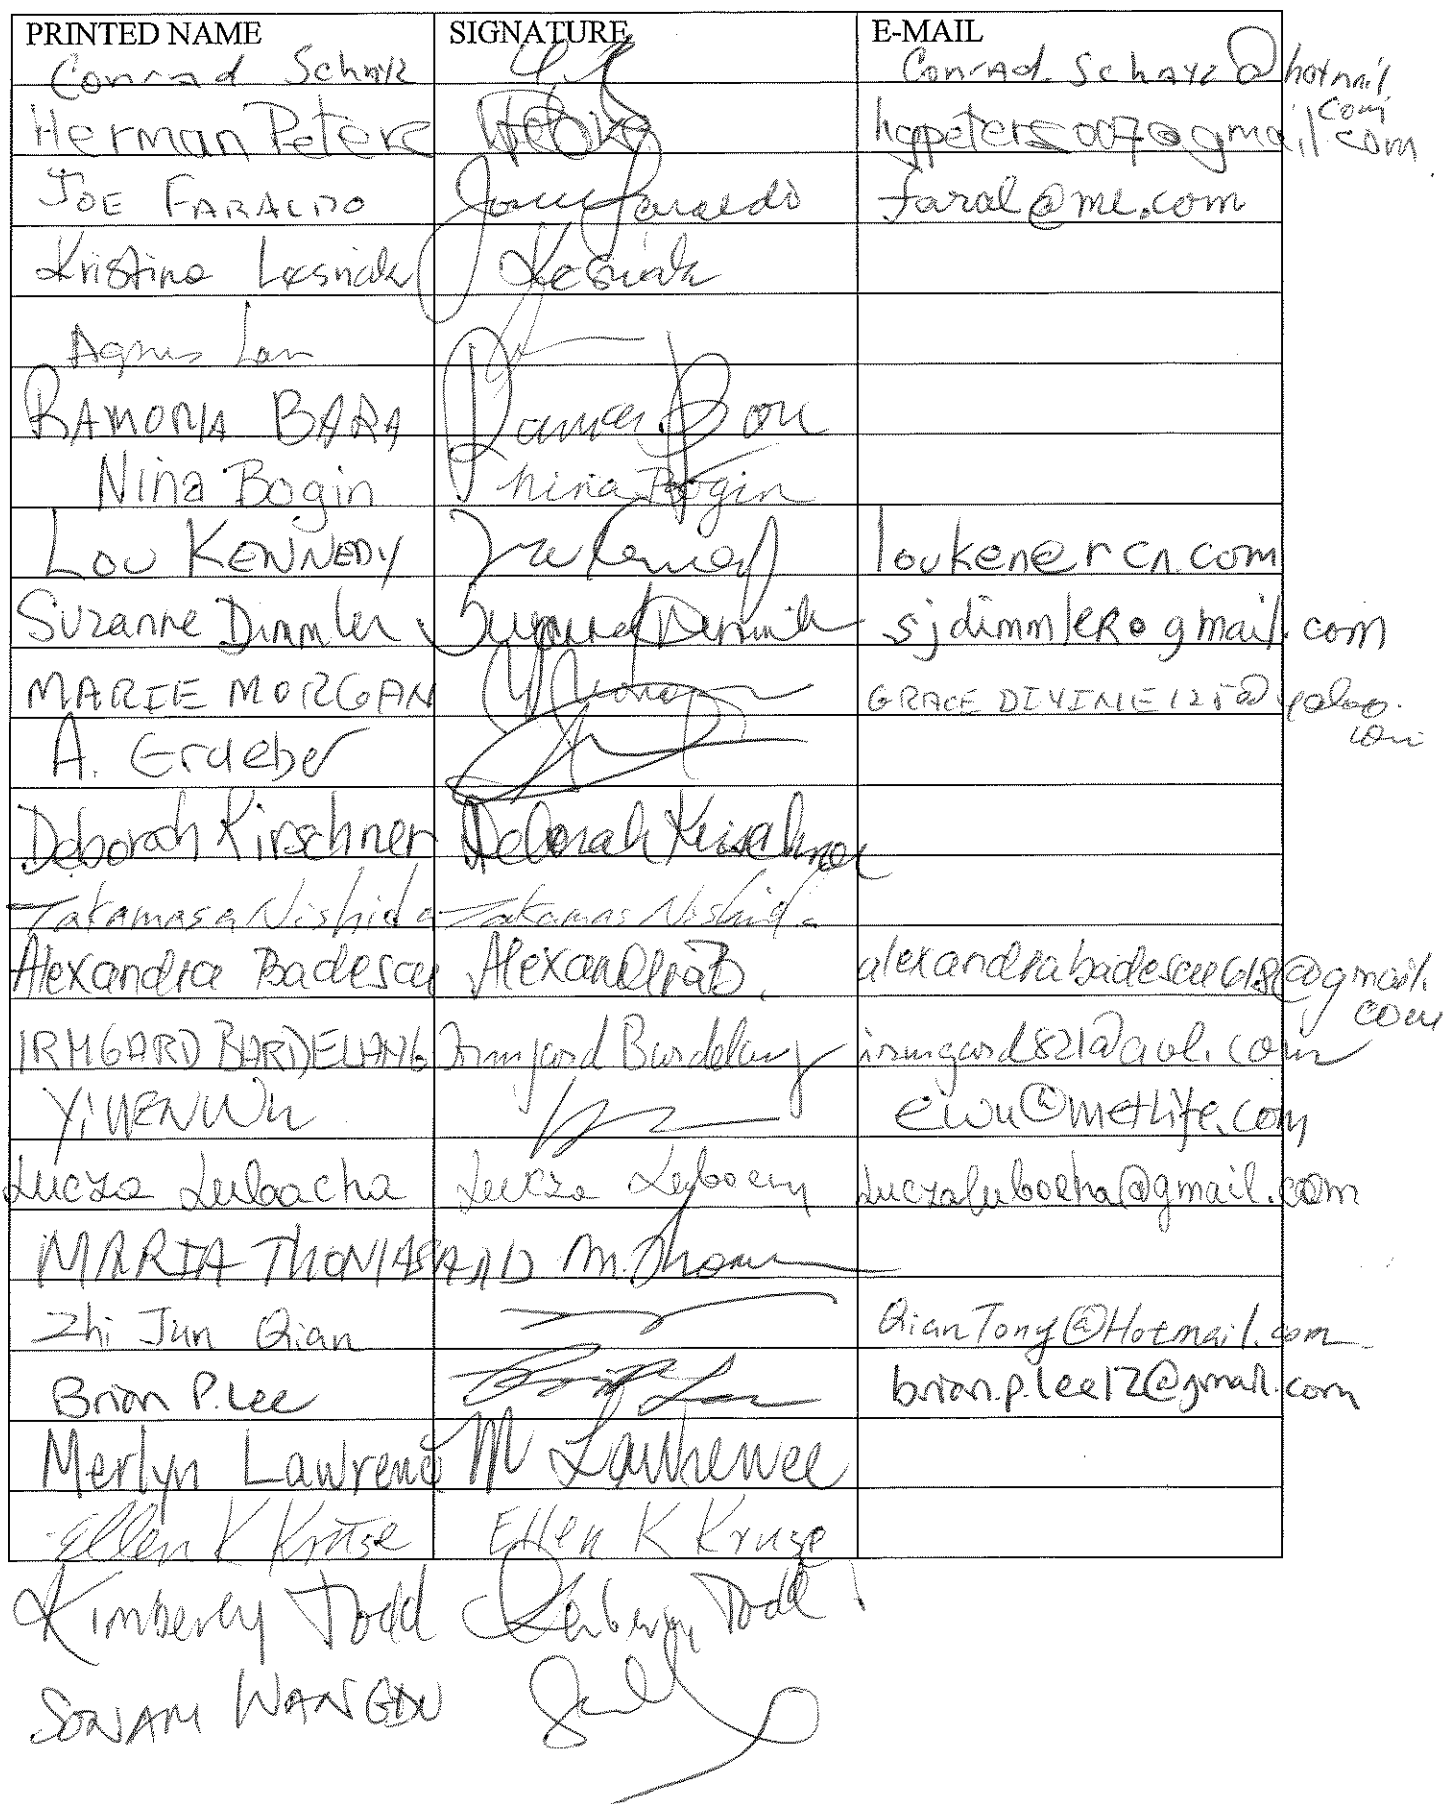 PRINTED NAME SIGNATURE E-MAIL
Conrad Conrad. @hotmail
com
Herman Peters hgpeters007@gmail.com
JOE FARALDO faral@me.com
Kristina Lesniak Lesniak
Agnes Lam
RAMONA BARA
Nina Bogin Nina Bogin
LOU KENNEDY Lou Kennedy louken@rcn.com
Suzanne Dimmler sjdimmler@gmail.com
MARIE MORGAN GRACEDIVINE125@yahoo.
com
A. Graeber
Deborah Kirschner Deborah Kirschner
Takamasa Nishida Takamasa Nishida
Alexandra Badescu Alexandra B. alexandrabadescu618@gmail.
com
IRMGARD BARDELANG Irmgard Bardelang irmgard821@aol.com
YIWEN WU ewu@metlife.com
Lucza
MARIA THOMASAND M. Thomas
Zhi Jun Qian QianTony@Hotmail.com
Brian P. Lee brian.p.lee12@gmail.com
Merlyn Lawrence M Lawrence
Ellen K Kruse Ellen K Kruse
Kimberly Todd Kimberly Todd
SONAM WANGDU